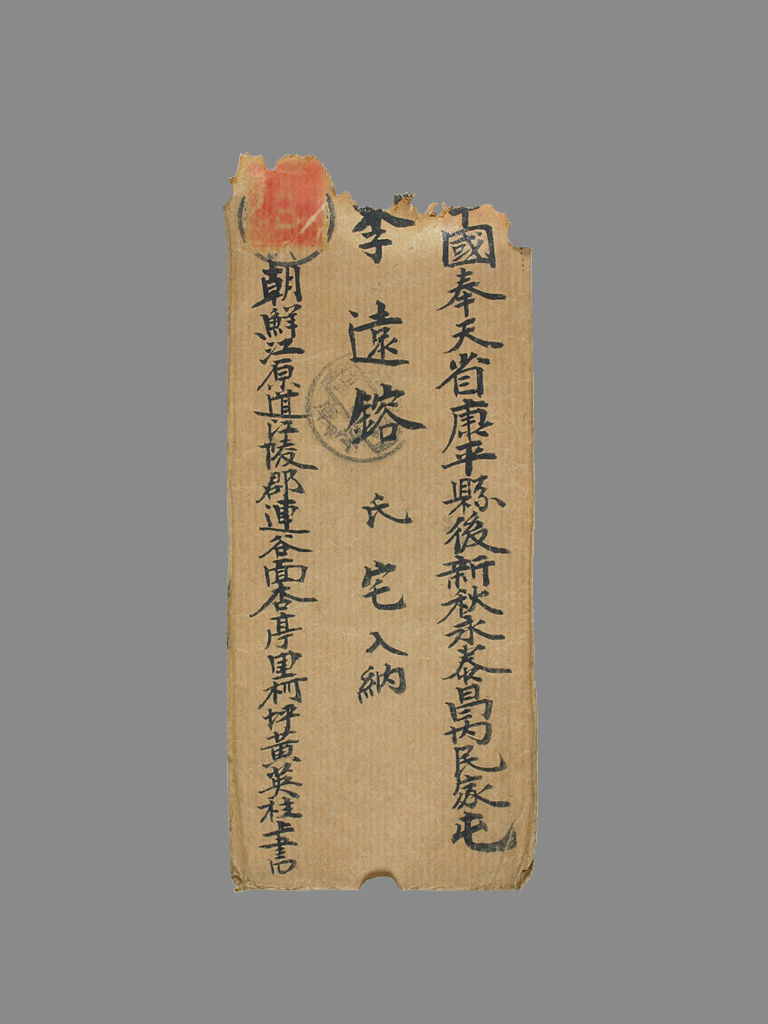 國奉天省康平縣後新秋永泰昌丙民家屯
李遠鎔氏宅入納
朝鮮江原道江陵郡連谷面杏亭里柯坪黃英桂上書